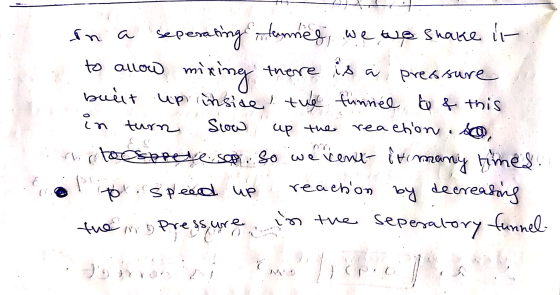 In a seperating funnel, we we shake it
to allow mixing there is a pressure
built up inside the funnel & this
in turn slow up the reaction. So,
so we vent it many times.
to speed up reaction by decreasing
the pressure in the seperatory funnel.